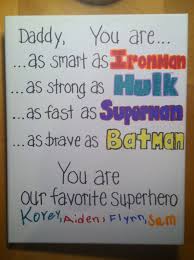 Daddy, You are...
...as smart as IRonMan
...as strong as Hulk
...as fast as Superman
...as brave as Batman
You are
our favorite superhero
Korey, Aiden, Flynn, Sam